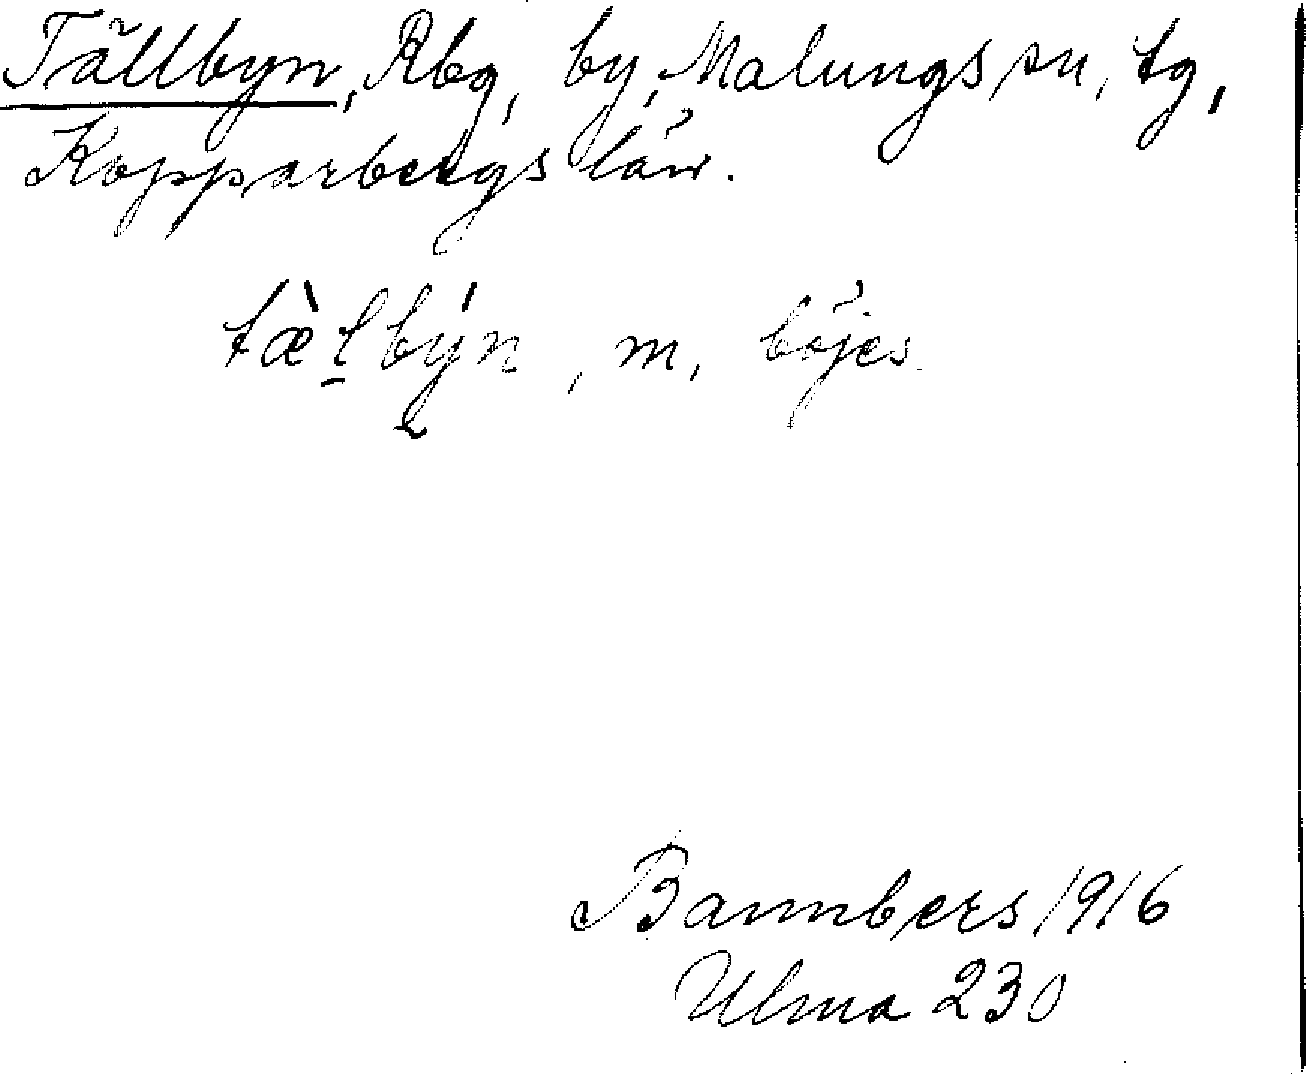 Tällbyn, Rbg, by, Malungs sn, tg,
Kopparbergs län.
tæ̀l̠býn, m, böjes.
Bannbers 1916
Ulma 230